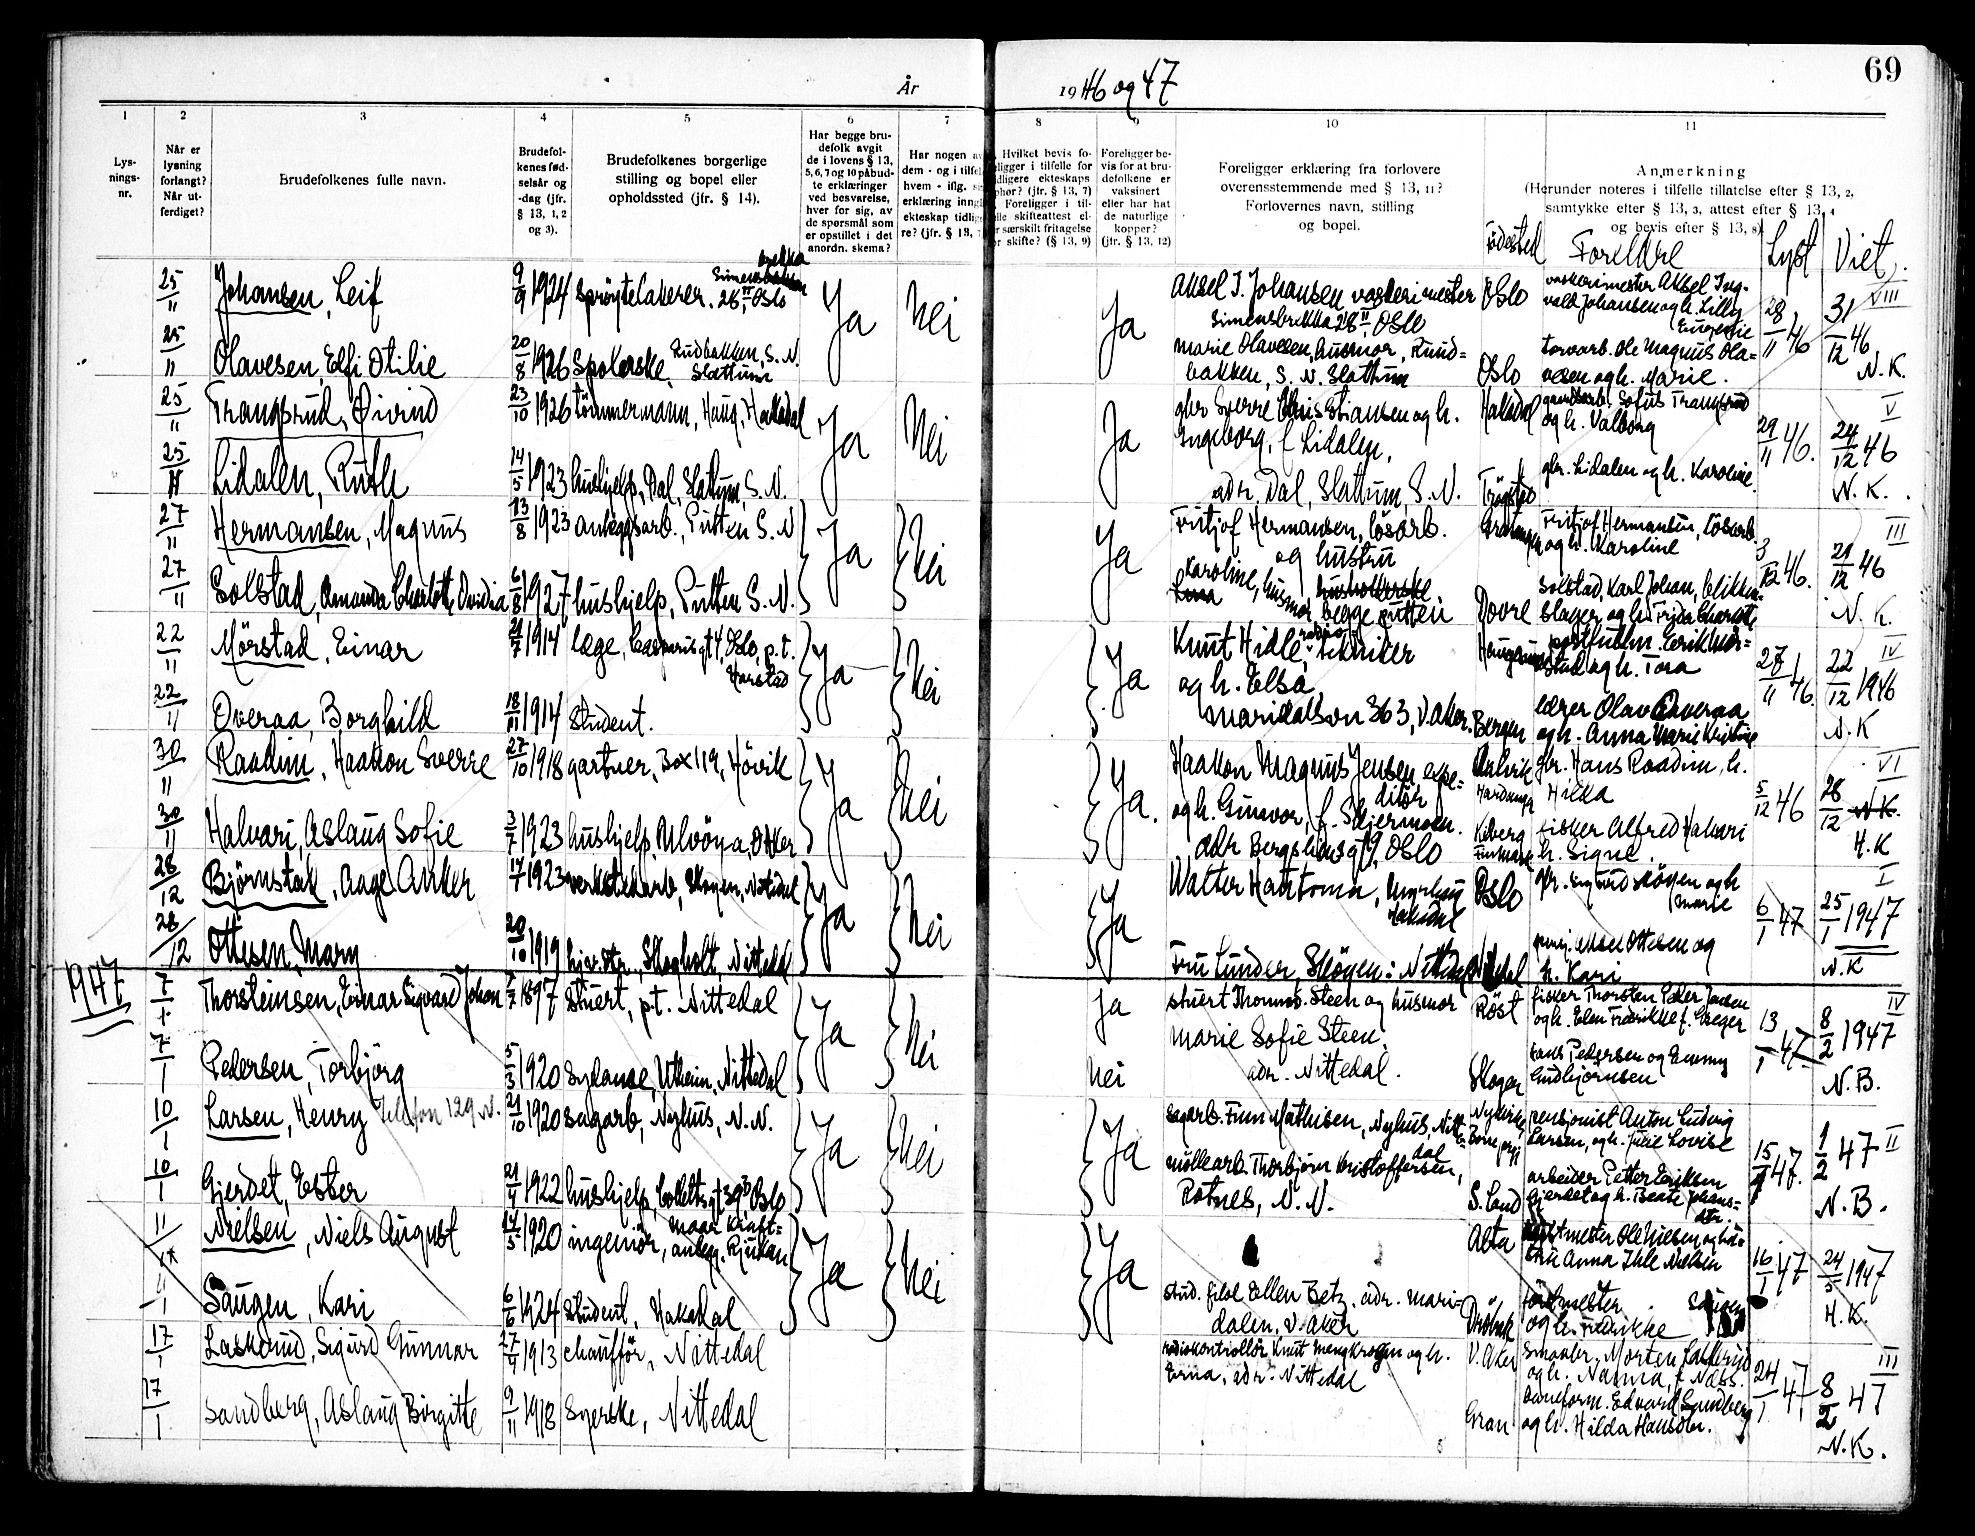 69
År 1946 og 47
1 2 3 4 5 6 7 8 9 10 11
Lys-
nings-
nr.
Når er
lysning
forlangt?
Når ut-
ferdiget?
Brudefolkenes fulle navn.
Brudefol-
kenes fød-
selsår og
-dag (jfr.
§ 13, 1, 2
og 3).
Brudefolkenes borgerlige
stilling og bopel eller
opholdssted (jfr. § 14).
Har begge bru-
defolk avgit
de i lovens § 13,
5, 6, 7 og 10 påbud-
te erklæringer
ved besvarelse,
hver for sig, av
de spørsmål som
er opstillet i det
anordn. skema?
Har nogen a
dem - og i tilfel
hvem - iflg. s
erklæring inng
ekteskap tidlig
re? (jfr. § 13,
Hvilket bevis fo-
ligger i tilfelle for
dligere ekteskaps
phør? (jfr. § 13, 7)
Foreligger i til-
lle skifteattest el-
r særskilt fritagelse
r skifte? (§ 13, 9)
Foreligger be-
vis for at bru-
defolkene er
vaksinert
eller har hat
de naturlige
kopper?
(jfr. § 13, 12)
Foreligger erklæring fra forlovere
overensstemmende med § 13, 11?
Forlovernes navn, stilling
og bopel.
Anmerkning
(Herunder noteres i tilfelle tillatelse efter § 13, 2,
samtykke efter § 13, 3, attest efter § 13, 4
og bevis efter § 13, 8)
Fødested Foreldre Lyst Viet.
25/11 Johansen, Leif 9/9 1924 Sprøytelakerer. 28 II, Oslo Ja Nei Ja Aksel I. Johansen vaskerimester Oslo vaskerimester Aksel Ing-
vald Johansen og h. Lilly
Eugenie 28/11 46 31/12 46 VIII
Simensbrekka 28 II, Oslo
25/11 Olavesen, Elfi Otilie 20/8 1926 Spolerske, Rudbakken, S. N.
Slattum Marie Olavesen, husmor, Rund-
bakken, S. N. Slattum Oslo torvarb. Ole Magnus Ola-
vesen og h. Marie. N. K.
25/11 Trangsrud, Øivind 23/10 1926 tømmermann, Haug, Hakadal Ja Nei Ja gbr Sverre Christiansen og h.
Ingeborg, f. Lidalen, Hakadal Sofus Trangsrud
og h. Valborg 29/11 46. 24/12 46 V
25/11 Lidalen, Ruth 14/5 1923 hushjelp, Dal, Slattum, S. N. adr. Dal, Slattum, S. N. Trøgstad gbr. Lidalen og h. Karoline. N. K.
27/11 Hermansen, Magnus 13/8 1923 anleggsarb., Putten S. N Ja Nei Ja Fritjof Hermansen, løsarb.
og hustru
Karoline, husmor, begge Putten Gratangen Fritjof Hermansen, løsarb.
og h. Karoline 3/12 46. 21/12 46 III
27/11 Solstad, Amanda Charlotte Ovidia 6/8 1927 hushjelp, Putten S. N. Dovre Solstad, Karl Johan, blikken-
slager og h. Frida Charlotte N. K.
22/11 Mørstad, Einar 21/7 1914 læge, Casparis gt 4, Oslo, p. t.
Harstad Ja Nei Ja Knut Hidle, tekniker
og h. Elsa, Haugesund postfullm. Erik Mør-
stad og h. Tora 27/11 46. 22/12 1946 IV
22/11 Overaa, Borghild 18/11 1914 Student. Maridalsvn 363, V. Aker. Bergen lærer Olav Overaa
og h. Anna Marie Kristine N. K
30/11 Raadim, Haakon Sverre 27/10 1918 gartner, Box 119, Høvik Ja Nei Ja. Haakon Magnus Jensen expe-
ditør
og h. Gunvor, f. Skjermoen. Aalvik
Hardanger gbr. Hans Raadim, h.
Hilda 5/12 46 26/12 N.K. VI
30/11 Halvari, Aslaug Sofie 3/7 1923 hushjelp, Ulvøya, O. Aker adr Bergsliensgt 9, Oslo Kiberg
Finmark fisker Alfred Halvari
h. Signe. H. K
28/12 Bjørnstak, Aage Anker 17/7 1923 verkstedarb, Skogen, Nittedal Ja Nei Ja Walter Hattoma, Oslo gbr. Sigurd Skøyen og h
Marie 6/1 47 25/1 1947 I
28/12 Ottesen, Mary 20/10 1919 Skogholt, Nittedal Fru Lunder Skøyen: Nittedal Nittedal Ottesen og
h. Kari N. K
1947
7/1 Thorsteinsen, Einar Sigvard Johan 7/7 1897 Stuert, pt. Nittedal Ja Nei Ja stuert Thomas. Steen og husmor
Marie Sofie Steen. Røst fisker Thorsten Peder Jensen
og h. Elen Fredrikke f. Greger 13/1 47 8/2 1947 IV
7/1 Pedersen, Torbjørg 5/3 1920 Sydame, Utheim, Nittedal Nei adr. Nittedal. Skogen Hans Pedersen og Emmy
Gudbjørnsen N. B.
10/1 Larsen, Henry Telefon 129 N. 21/10 1920 sagarb, Nyhus, N. N. Ja Nei Ja sagarb. Finn Mathisen, Nyhus, Nitt-
dal Nykirke,
Borre pgj pensjonist Anton Ludvig
Larsen, og h. Julie Lovise 15/1 47. 1/2 47 II
10/1 Gjerdet, Ester 21/4 1922 hushjelp, Colletts gt 39 B Oslo møllearb. Thorbjørn Kristoffersen,
Rotnes, N. N. S. Land arbeider Petter Eriksen
Gjerdet og h. Beate Johans-
dtr. N. B.
11/1 Nielsen, Niels August 14/5 1920 ingeniør, Maar Kraft-
anlegg. Rjukan Ja Nei Ja Alta Ole Nielsen og hu-
stru Anna Ihle Nielsen 16/1 47 24/5 1947
11/1 Saugen, Kari 6/6 1924 Student, Hakadal stud. filol Ellen Betz. adr. Mari-
dalen, V. Aker Drøbak forstmester Saugen
og h. Fredrikke H. K.
17/1 Laskerud, Sigurd Gunnar 27/9 1913 chauffør, Nittedal radiokontrollør Knut Mengkrogen og h.
Erna, adr. Nittedal V. Aker Morten Laskerud
og h. Nanna, f. Næss. 24/1 47. 8/2 47 III
17/1 Sandberg, Aslaug Birgitte 9/11 1918 Syerske, Nittedal Gran Baneform. Edvard Sandberg
og h. Hilda Hansdtr. N. K.